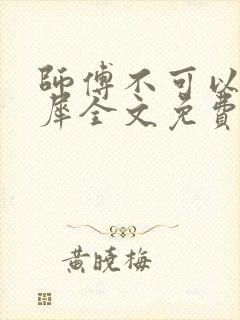 師傅不可以
犀全文免費
黃曉梅